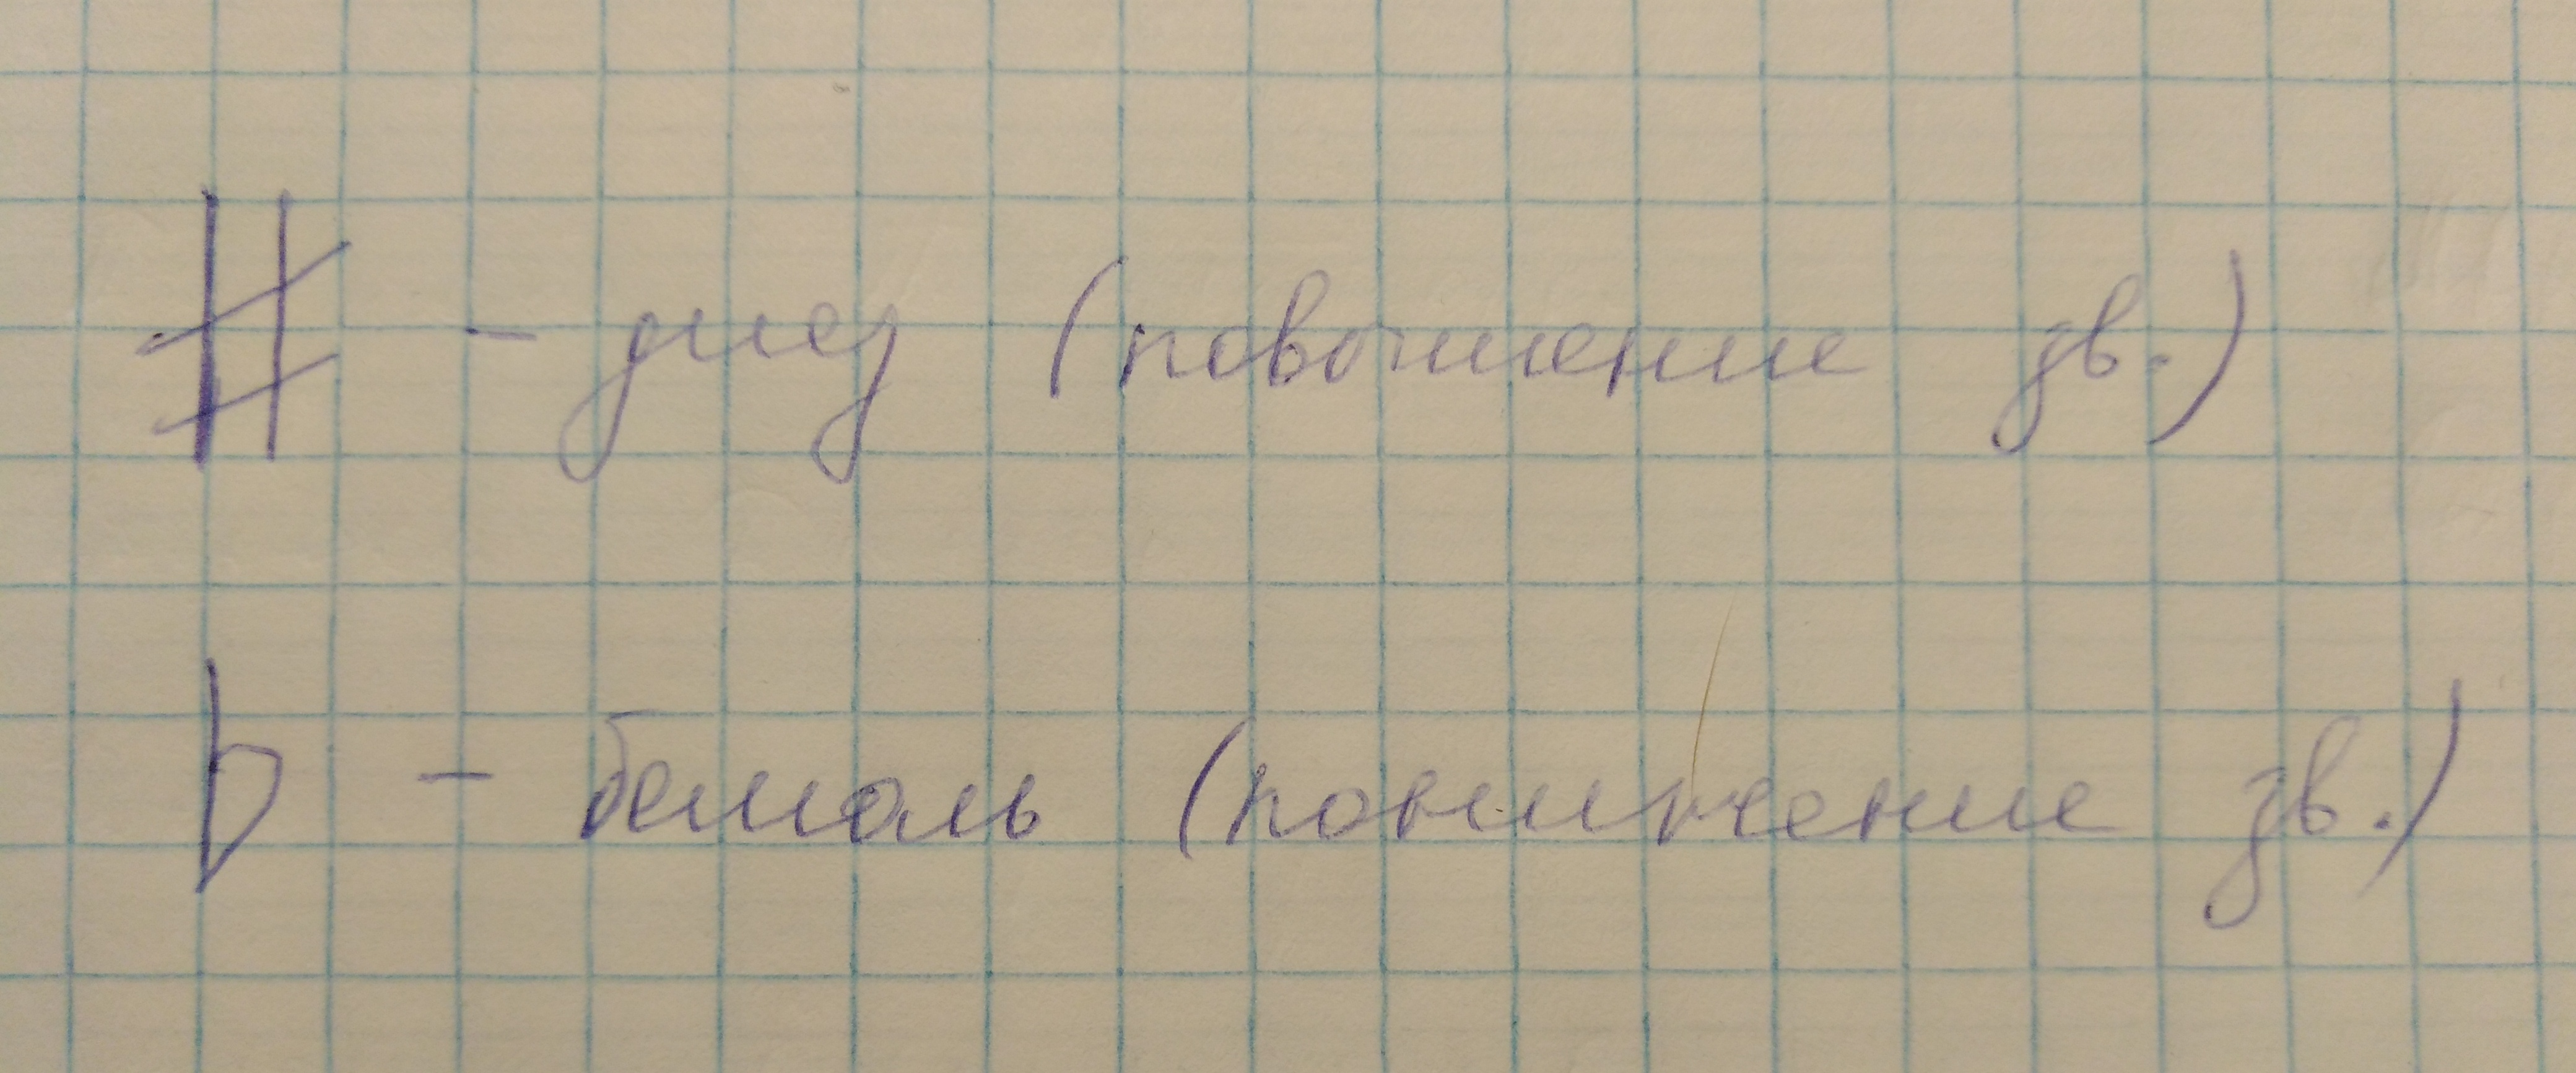 # - диез (повышение зв.)
b - бемоль (понижение зв.)